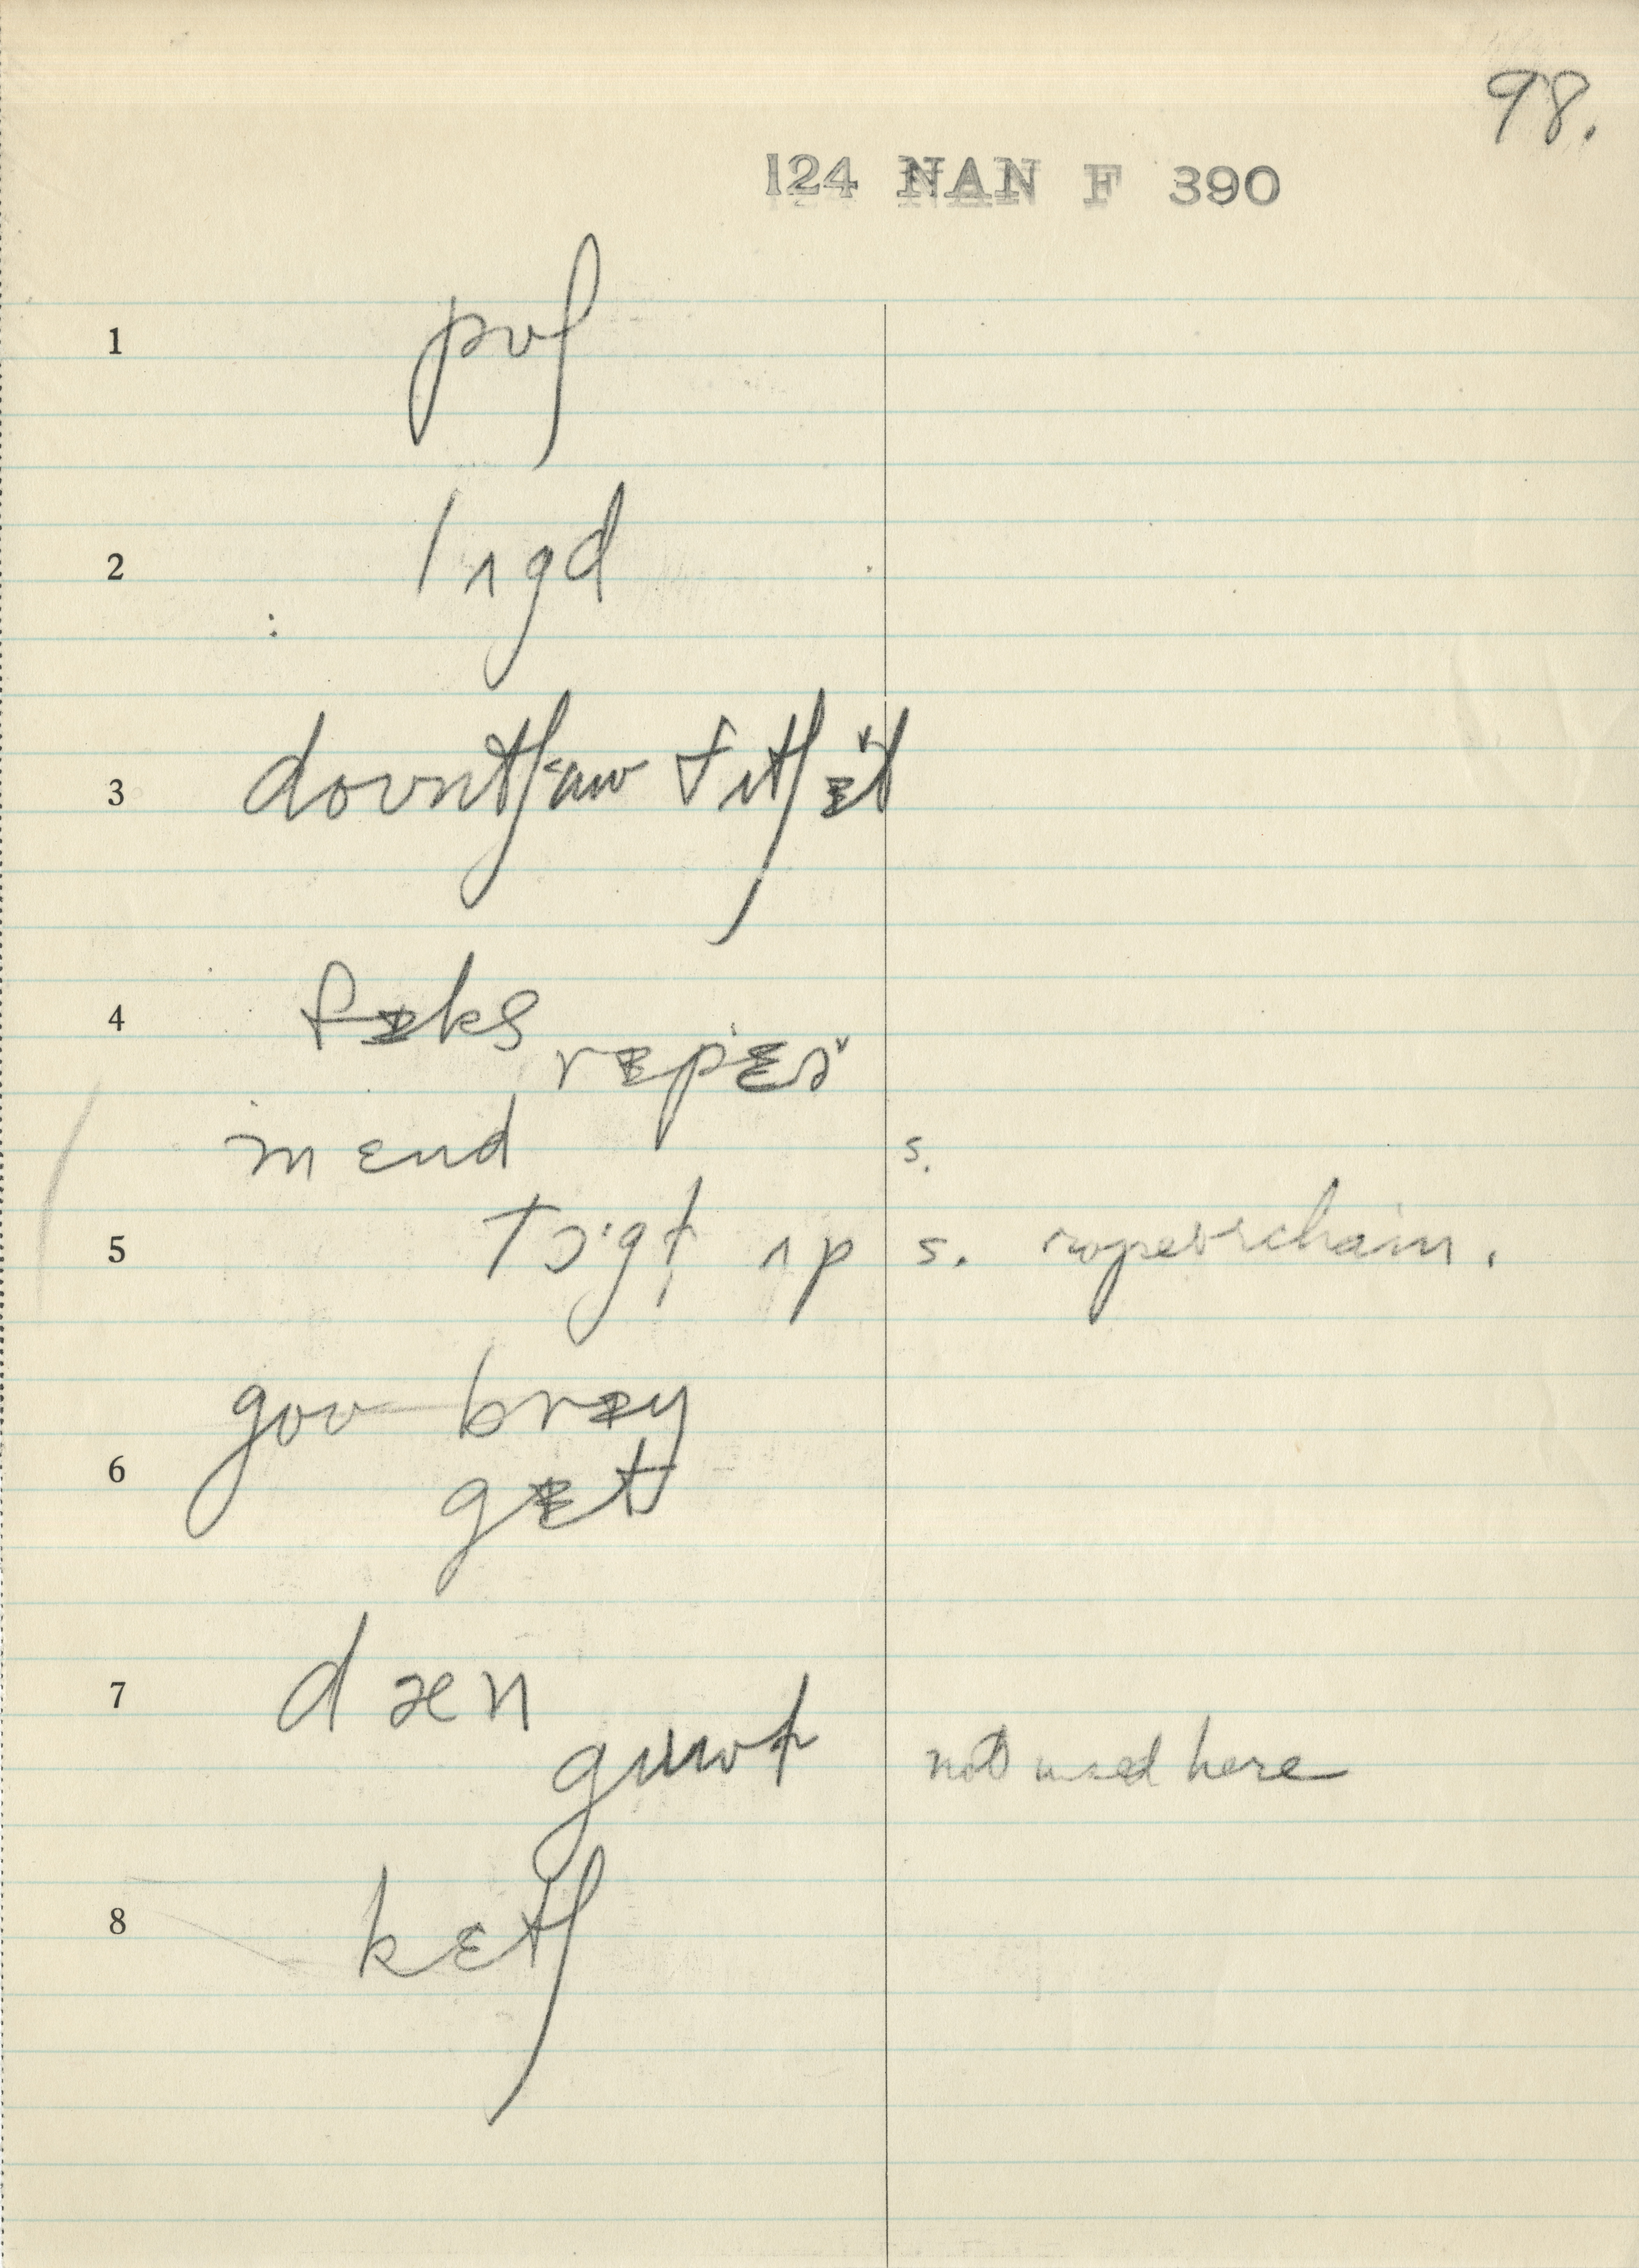 98.
124 NAN F 390
1 pʊʃ
2 lʌgd
3 doʊntʃəw tʊtʃ ɪt
4 fɪks
rɪpɛə
mɛnd s.
5 tɔ·gt ʌp s. rope or chain.
goʊ brɪŋ
6 gɛt
7 dæn
gɪɪwt not used here
8 kɛtʃ